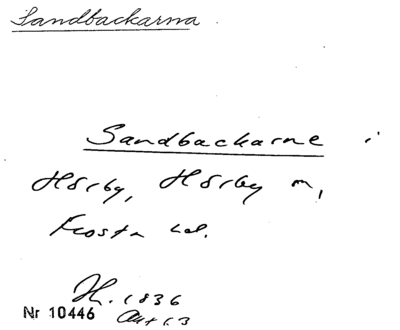 Sandbackarna
Sandbackarne i
Hörby, Hörby m,
Frosta hd.
H. 1836
Nr 10446 Akt 63